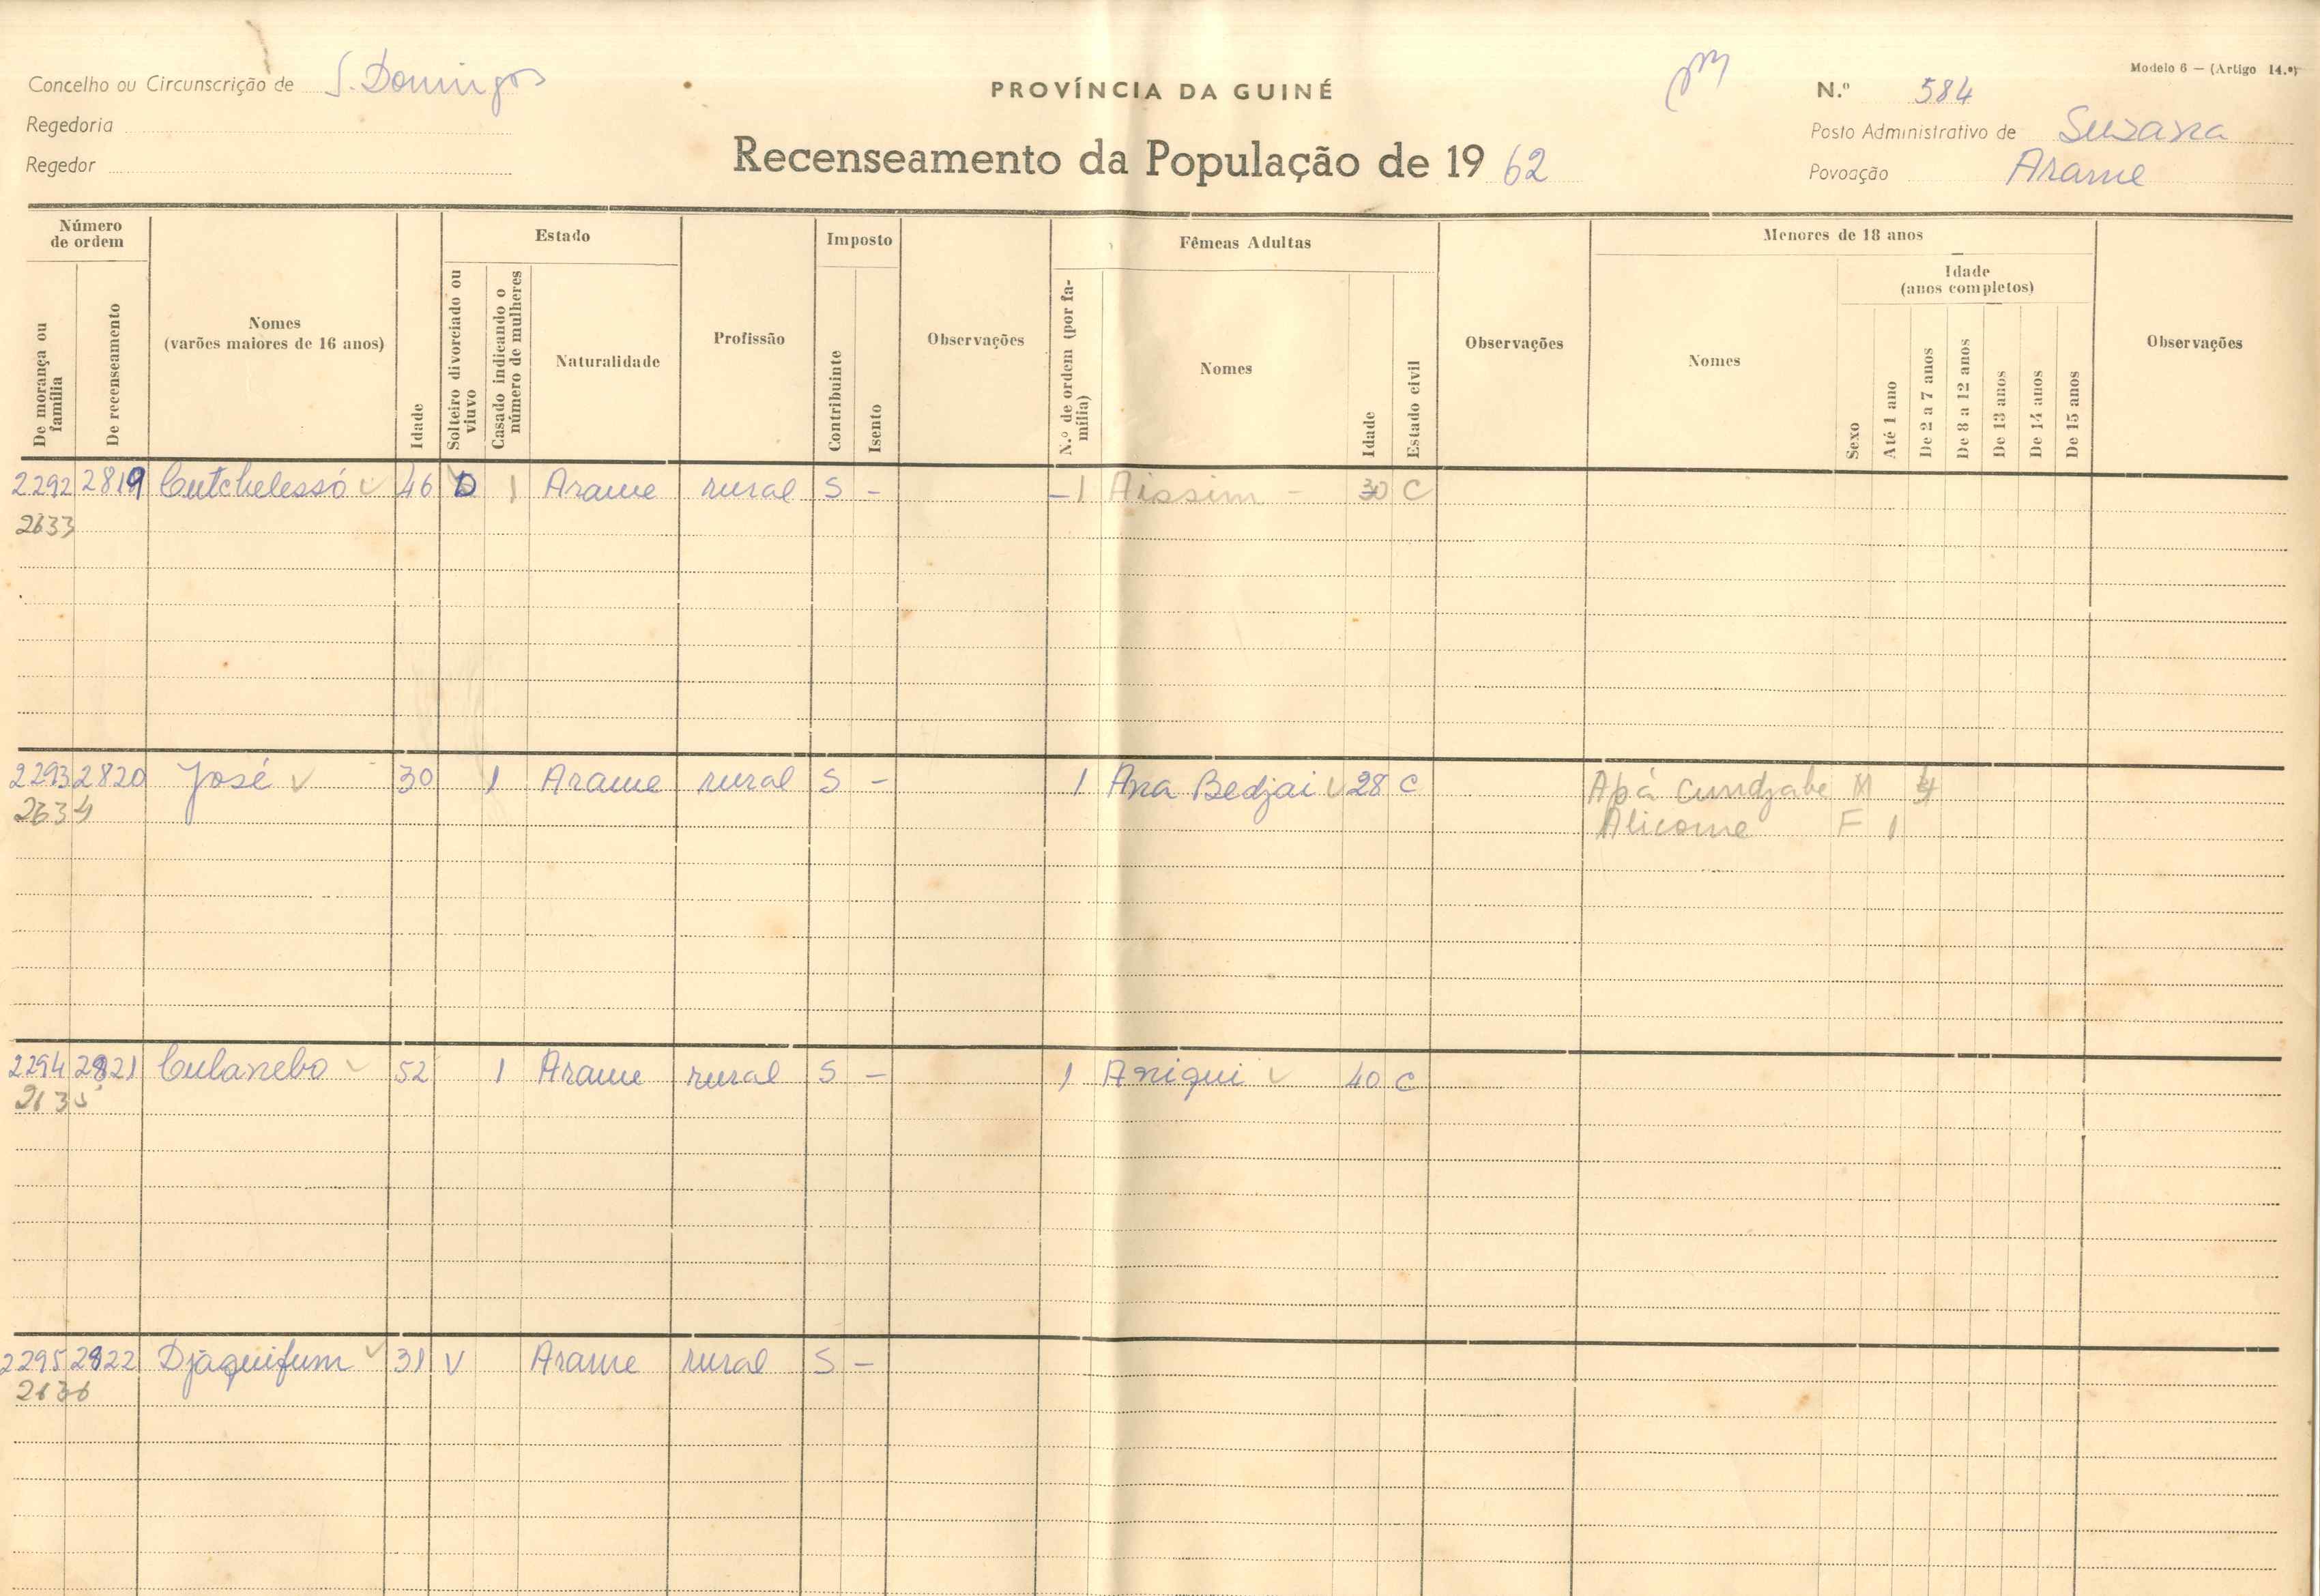 Modelo 6 — (Artigo 14.º)
Concelho ou Circunscrição de S. Domingos
PROVÍNCIA DA GUINÉ
N.º 584
Regedoria
Posto Administrativo de Suzana
Regedor
Recenseamento da População de 19 62
Povoação Arame
Número de ordem
Estado
Imposto
Fêmeas Adultas
Menores de 18 anos
De morança ou família
De recenseamento
Nomes
(varões maiores de 16 anos)
Idade
Solteiro divorciado ou viuvo
Casado indicando o número de mulheres
Naturalidade
Profissão
Contribuinte
Isento
Observações
N.º de ordem (por família)
Nomes
Idade
Estado civil
Observações
Nomes
Sexo
Idade
(anos completos)
Até 1 ano
De 2 a 7 anos
De 8 a 12 anos
De 13 anos
De 14 anos
De 15 anos
Observações
2292 2819 Cutchelessó 46 D 1 Arame rural S - - 1 Aissim - 30 C
2633
2293 2820 José 30 1 Arame rural S - 1 Ana Bedjai 28 C Apá Cundjabe M
2634 Alicome F 1
2294 2821 Culanebo 52 1 Arame rural S - 1 Aniqui 40 C
2635
2295 2822 Djaquifum 31 V Arame rural S -
2636